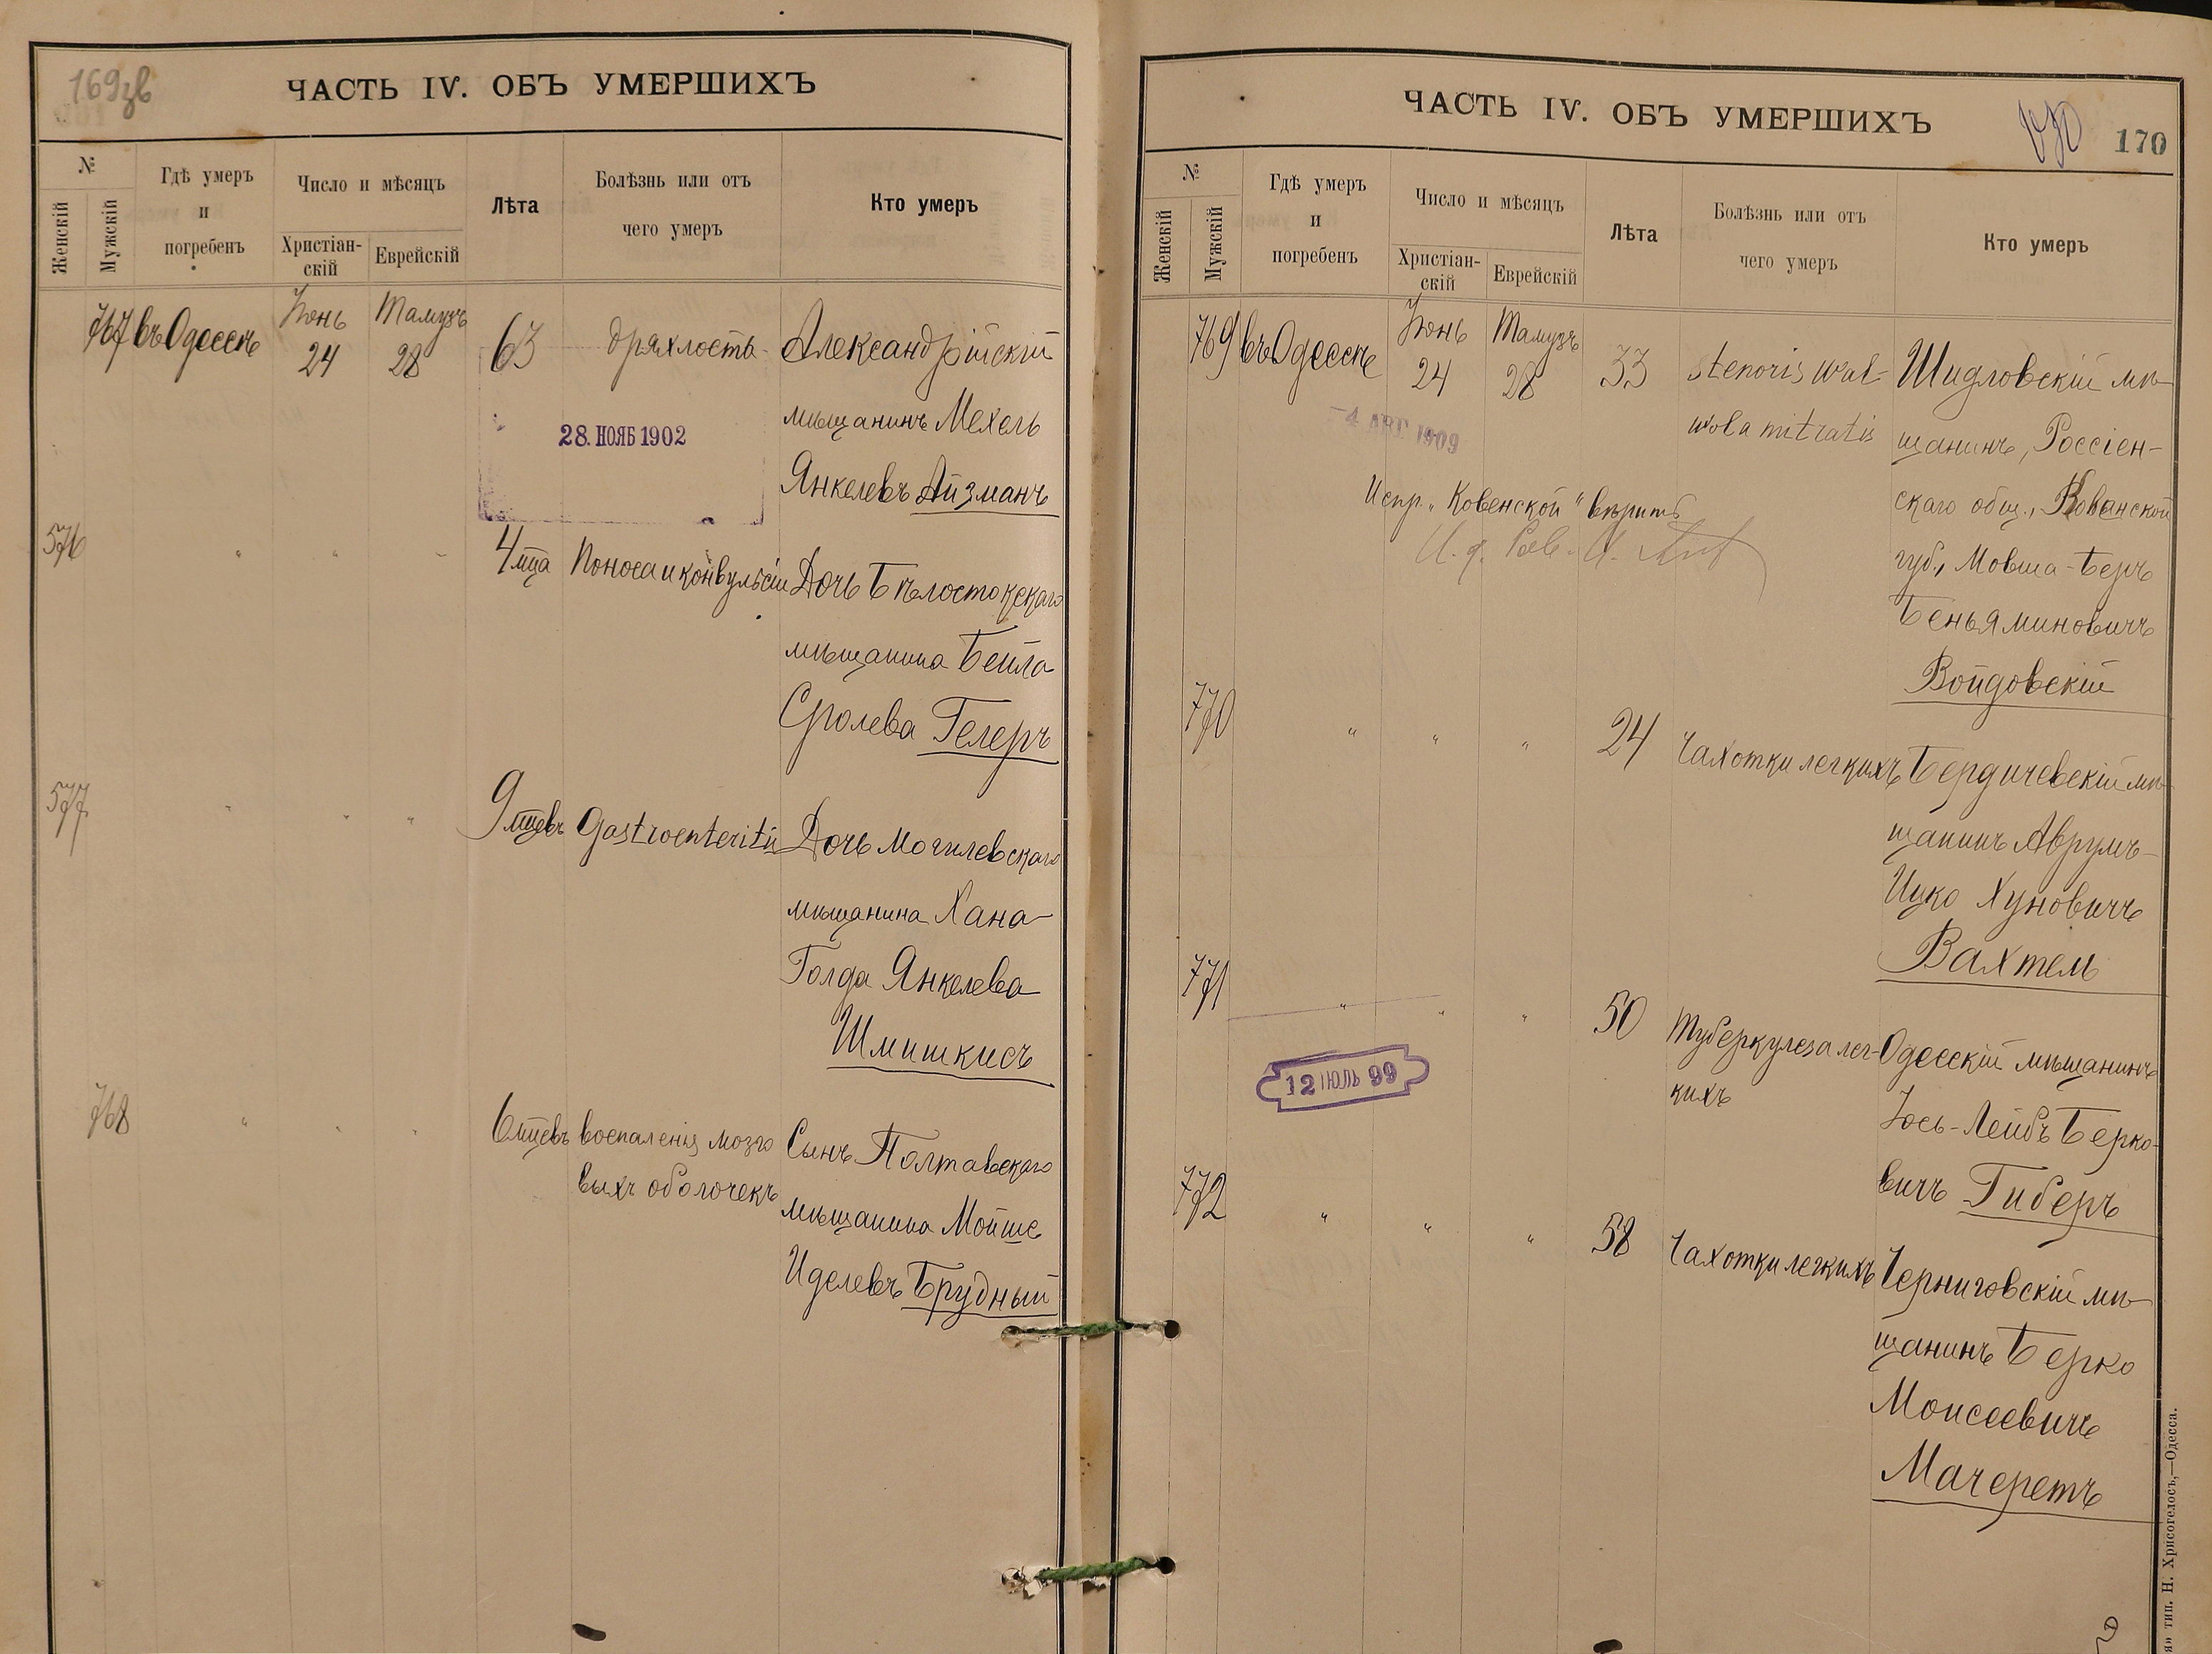 169зв
ЧАСТЬ IV. ОБЪ УМЕРШИХЪ
№
Женскій
Мужскій
Гдѣ умеръ
и
погребенъ
Число и мѣсяцъ
Христіан-
скій
Еврейскій
Лѣта
Болѣзнь или отъ
чего умеръ
Кто умеръ
767 въ Одессѣ Іюнь 24 Тамузъ 28 63 дряхлость Александрійскій
мѣщанинъ Мехель
Янкелевъ Айзманъ
28. НОЯБ 1902
576 " " " 4 мца Поноса и конвульсіи Дочь Бѣлостокскаго
мѣщанина Бейла
Сролева Гелеръ
577 " " " 9 мцевъ Gastroenteritis Дочь Могилевскаго
мѣщанина Хана-
Голда Янкелева
Шмишкисъ
768 " " " 6 мцевъ воспаленія мозго Сынъ Полтавскаго
выхъ оболочекъ мѣщанина Мойше
Иделевъ Брудный
ЧАСТЬ IV. ОБЪ УМЕРШИХЪ
170
170
№
Женскій
Мужскій
Гдѣ умеръ
и
погребенъ
Число и мѣсяцъ
Христіан-
скій
Еврейскій
Лѣта
Болѣзнь или отъ
чего умеръ
Кто умеръ
769 въ Одессѣ Іюнь 24 Тамузъ 28 33 stenoris wal- Шидловскій мѣ-
wola mitratis щанинъ, Россіен-
скаго общ., Кованской
губ., Мовша-Беръ
Беньяминовичъ
Войдовскій
-4 АВГ 1909
Испр. "Ковенской" вѣрить
И. д. Рав.
770 " " " 24 Чахотки легкихъ Бердичевскій мѣ-
щанинъ Аврумъ-
Ицко Хуновичъ
Вахтель
771 " " " 50 Туберкулеза лег- Одесскій мѣщанинъ
кихъ Іось-Лейбъ Берко-
вичъ Гиберъ
12 ІЮЛЬ 99
772 " " " 58 Чахотки легкихъ Черниговскій мѣ-
щанинъ Берко
Моисеевичъ
Мачеретъ
я» тип. Н. Хрисогелосъ,—Одесса.